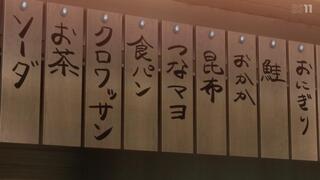 おにぎり
鮭
おかか
昆布
つなマヨ
食パン
クロワッサン
お茶
ソーダ